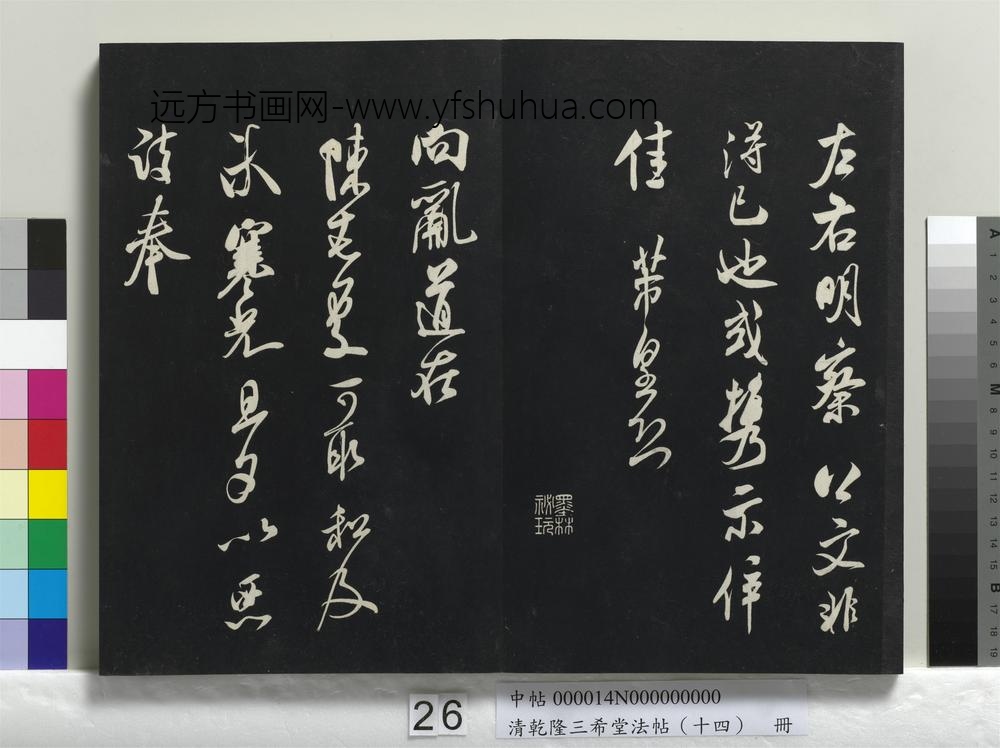 远方书画网-www.yfshuhua.com
左右明察 公文非
得已也或攜示倖
佳 芾皇恐
墨林
祕玩
向亂道在
陳 處可取 及
寒光旦夕以惡
詩奉
26
中帖 000014N000000000
清乾隆三希堂法帖（十四） 冊
A 1 2 3 4 5 6 M 8 9 10 11 12 13 14 15 B 17 18 19